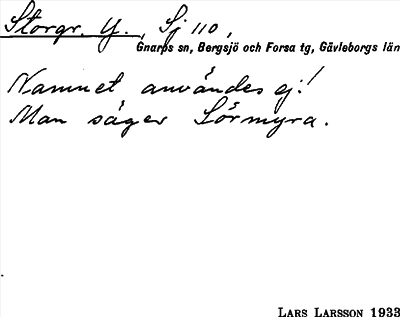 Storgr. Y., Sj 110,
Gnarps sn, Bergsjö och Forsa tg, Gävleborgs län
Namnet användes ej!
Man säger Sörmyra.
LARS LARSSON 1933